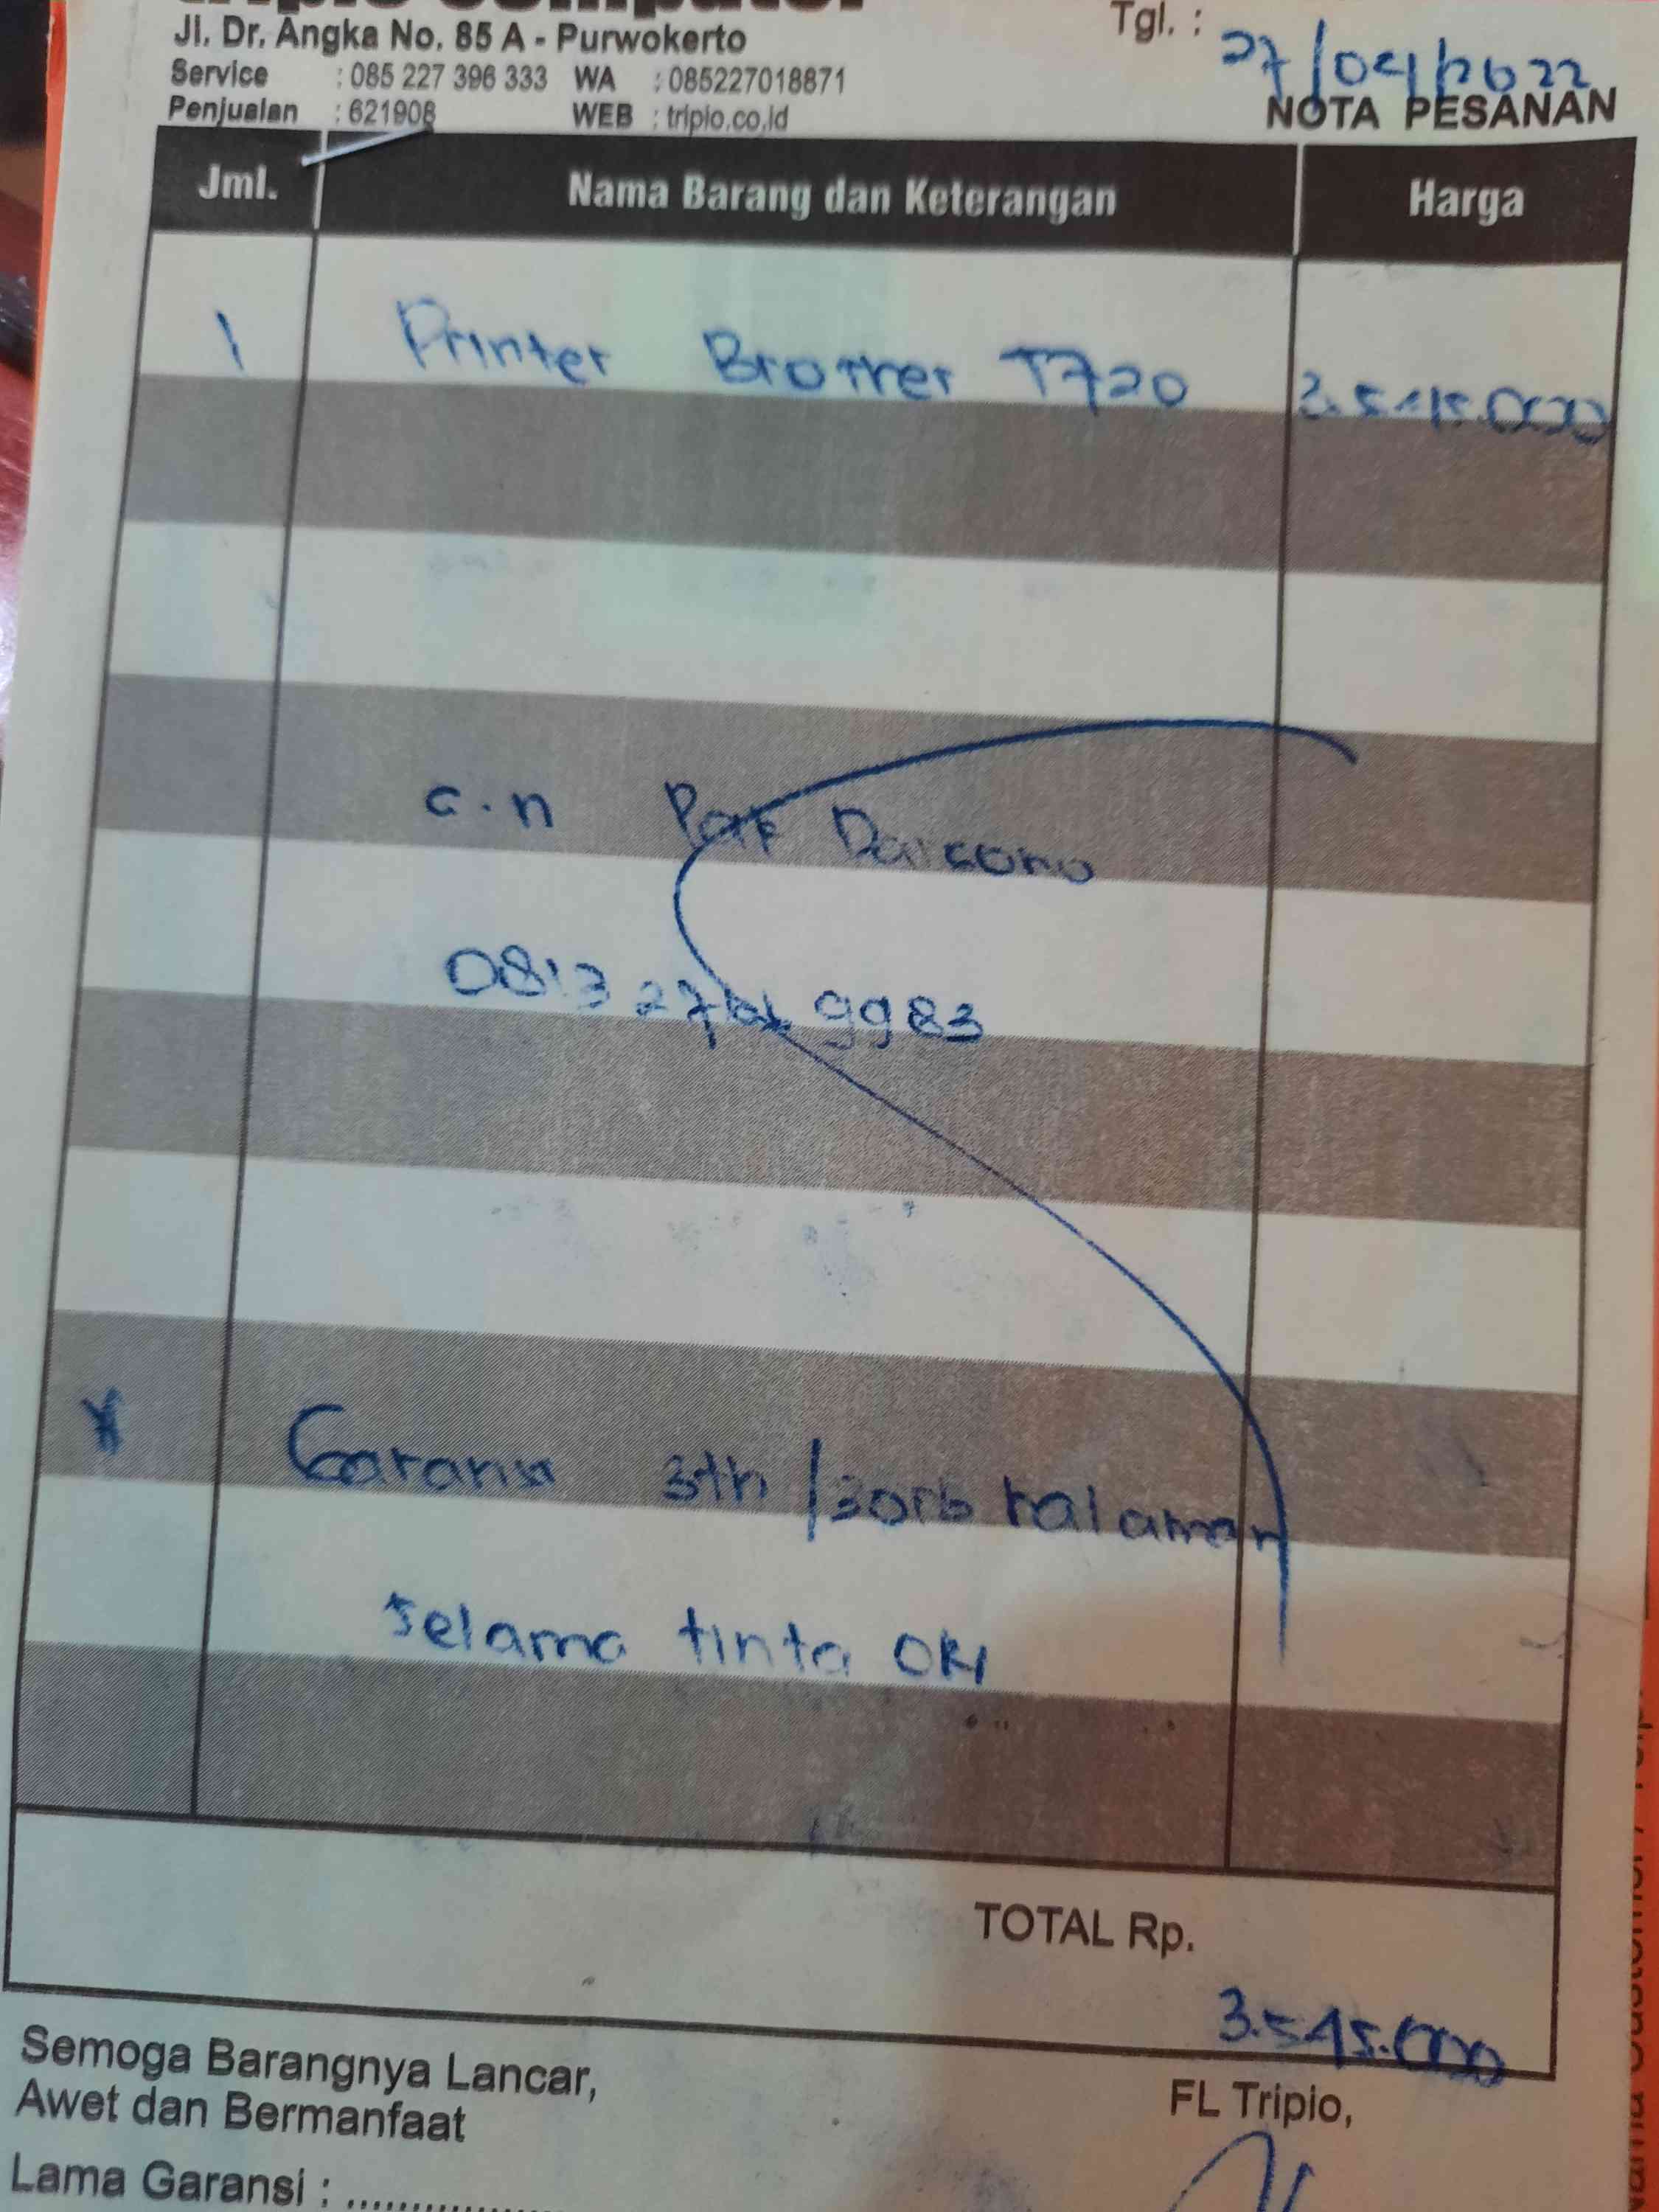 Tgl. : 27/04/2022
Jl. Dr. Angka No. 85 A - Purwokerto
Service : 085 227 396 333 WA : 085227018871
Penjualan : 621908 WEB : tripio.co.id
NOTA PESANAN
Jml. Nama Barang dan Keterangan Harga
1 Printer Brother T720 3.545.000
a.n Pak
0813 27 9983
* Garansi 3th / 30rb halaman
selama tinta ORI
TOTAL Rp.
3.545.000
Semoga Barangnya Lancar,
Awet dan Bermanfaat
FL Tripio,
Lama Garansi : ................